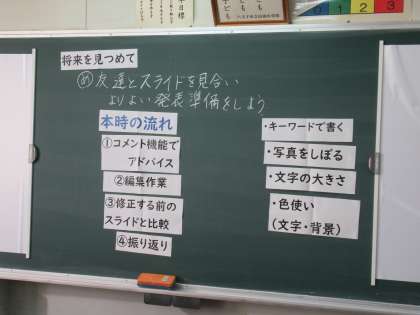 将来を見つめて
め 友達とスライドを見合い
よりよい発表準備をしよう
本時の流れ
①コメント機能で
アドバイス
②編集作業
③修正する前の
スライドと比較
④振り返り
・キーワードで書く
・写真をしぼる
・文字の大きさ
・色使い
(文字・背景)
1 2 3